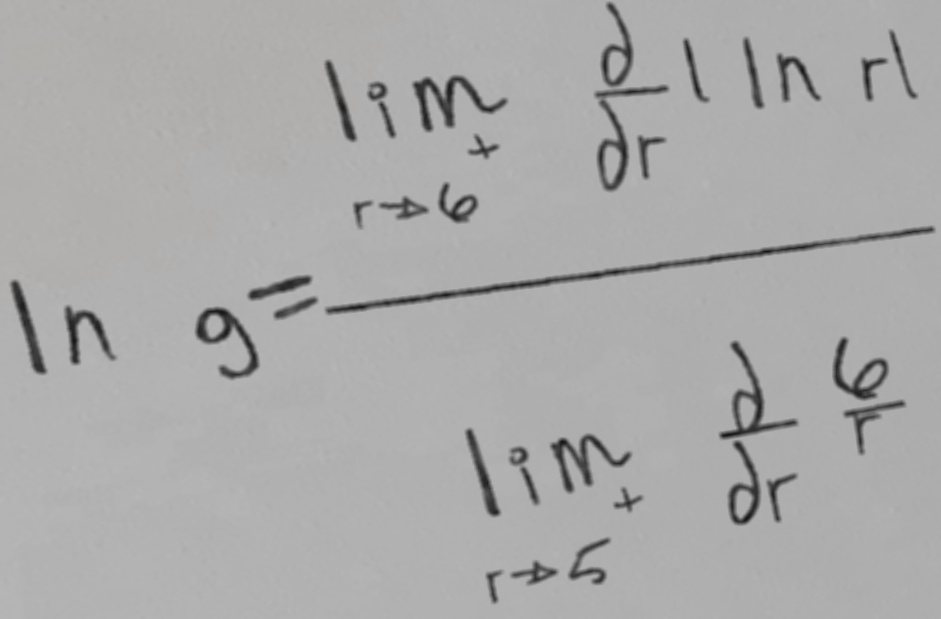 ln g = \frac{\lim_{r \to 6^+} \frac{d}{dr} | \ln r |}{\lim_{r \to 5^+} \frac{d}{dr} \frac{6}{r}}